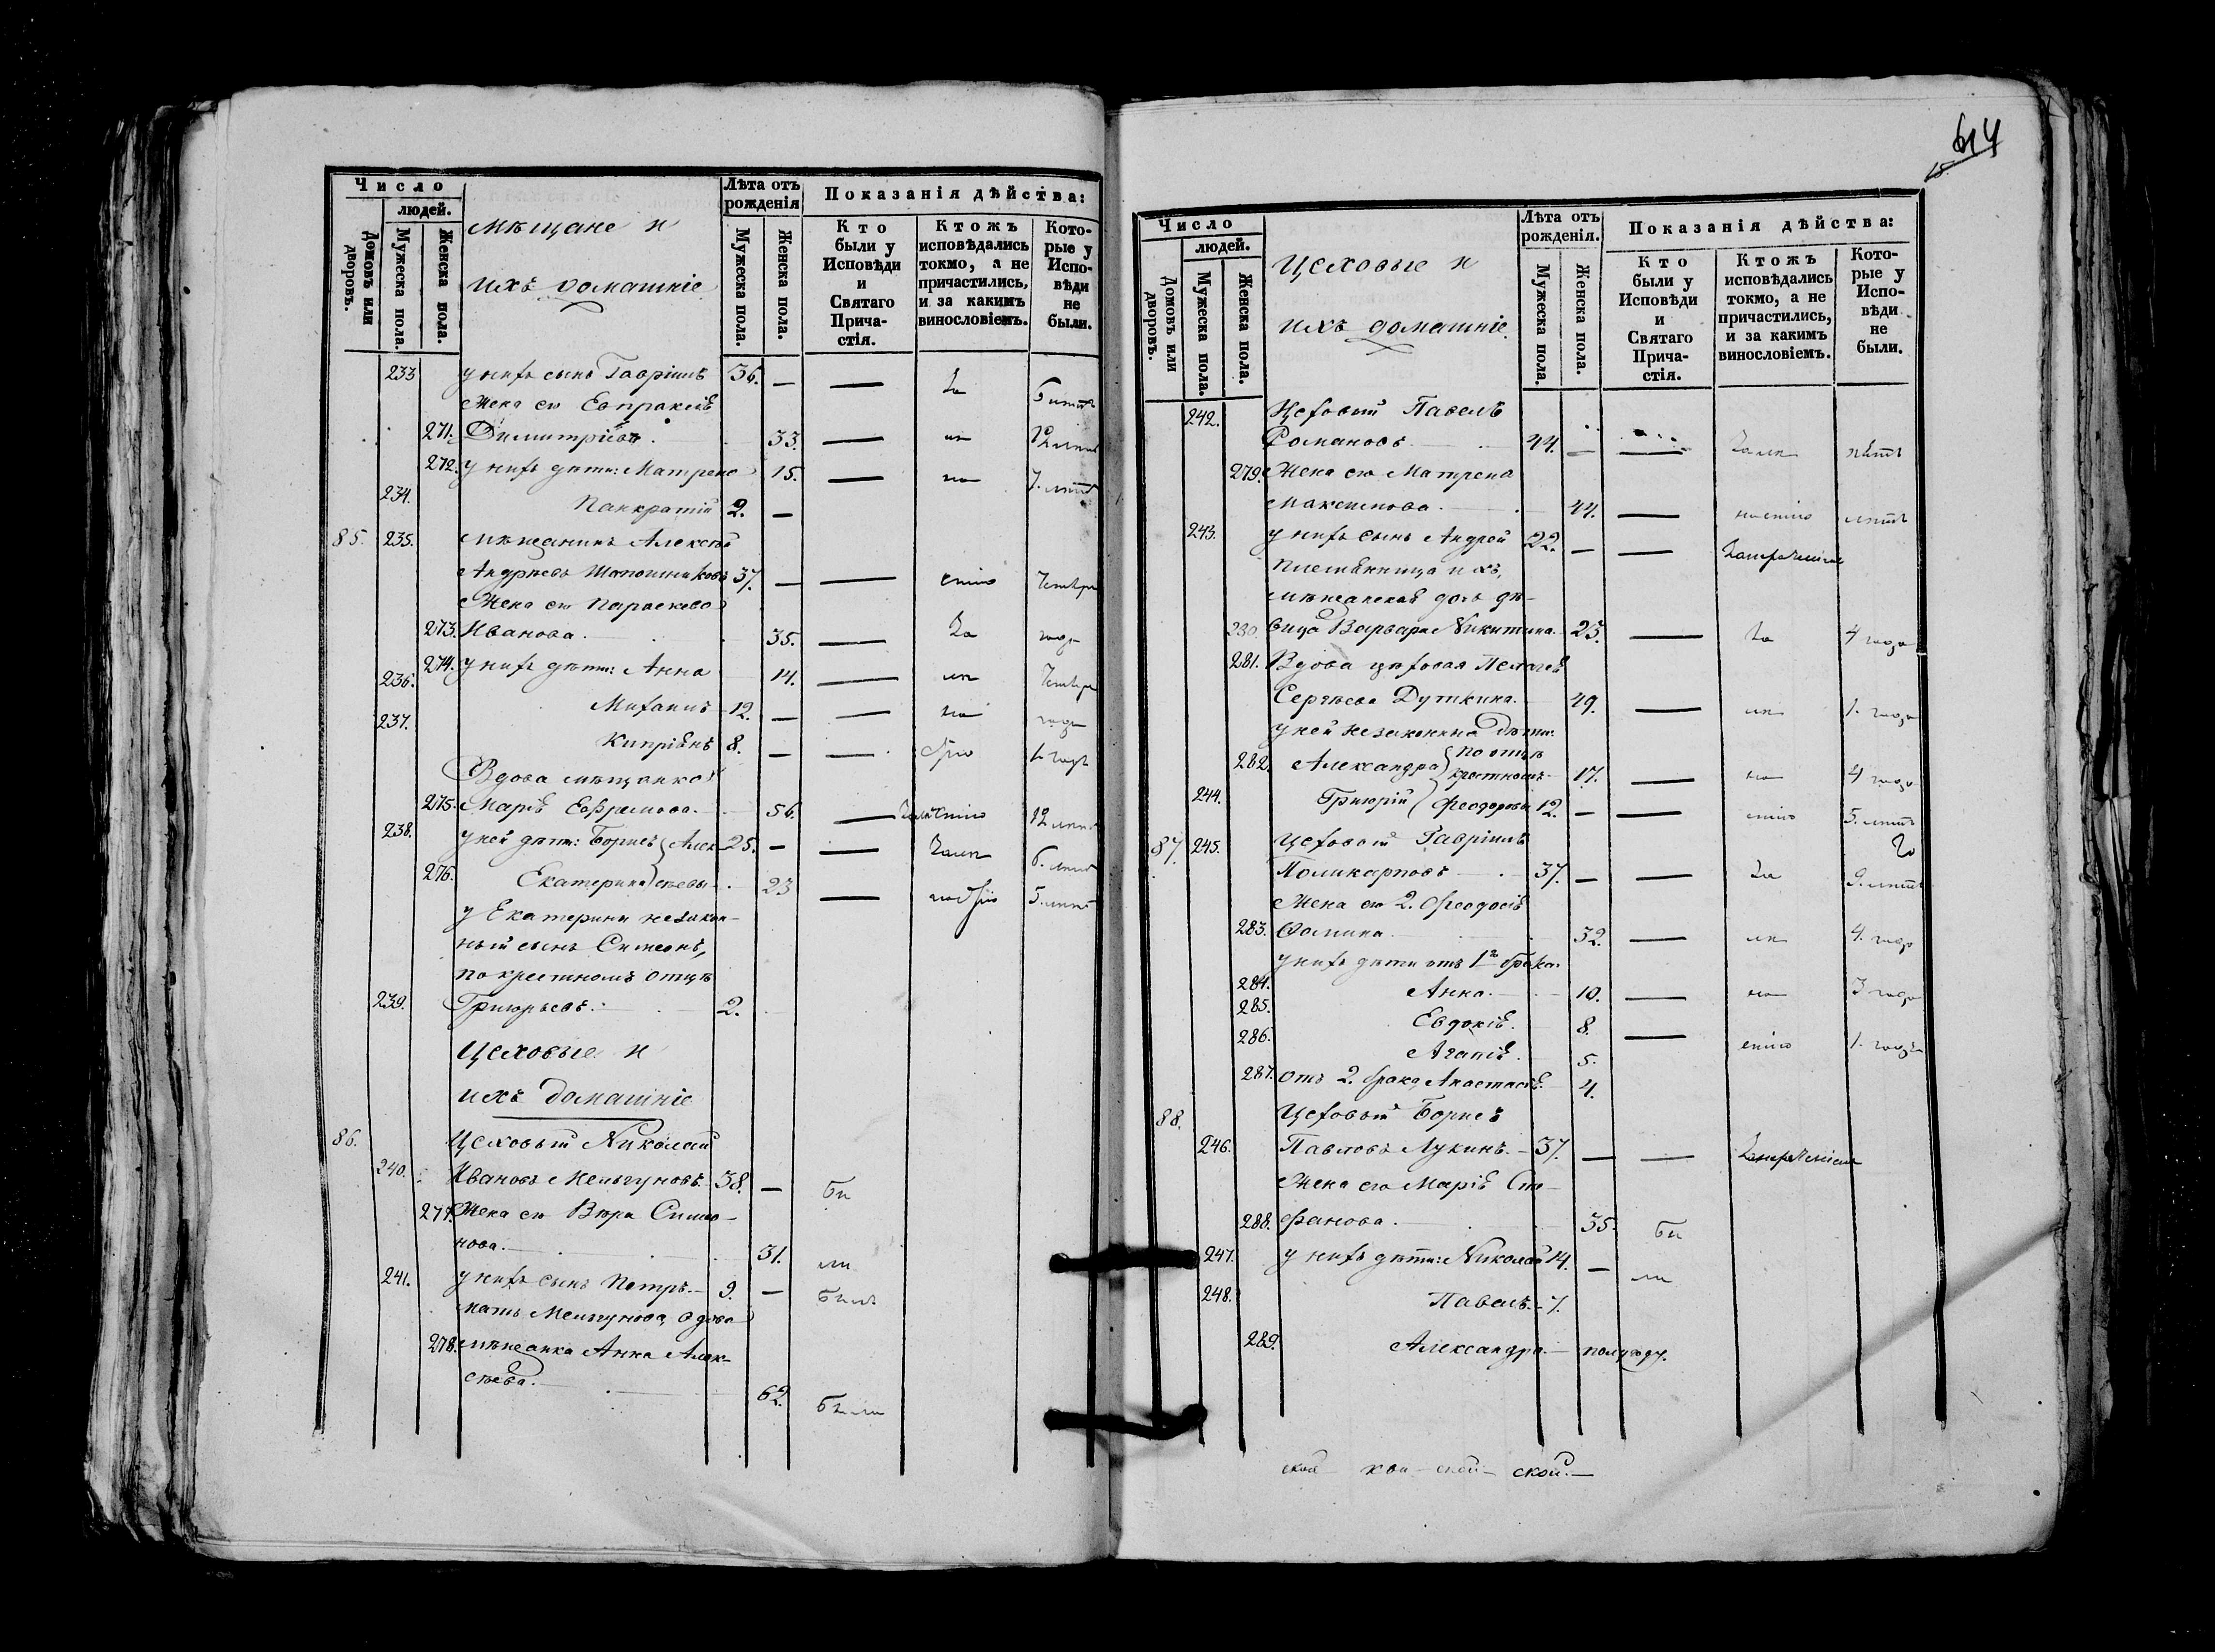 Число
людей.
Домовъ или дворовъ.
Мужеска пола.
Женска пола.
мѣщане и
ихъ домашніе
Лѣта отъ рожденія
Мужеска пола.
Женска пола.
Показанія дѣйства:
Кто были у Исповѣди и Святаго Прича-стія.
Ктожъ исповѣдались токмо, а не причастились, и за какимъ винословіемъ.
Кото-рые у Испо-вѣди не были.
233 у нихъ сынъ Гавріилъ 36. — — за 6 лѣтъ
Жена его Евпраксія
271. Димитріева. 33. — 12 лѣтъ
272. у нихъ дѣти: Матрена 15. — 7. лѣтъ
234. Панкратій 2. —
85. 235. мѣщанинъ Алексѣй
Андреевъ Шапошниковъ 37. — —
Жена его Параскева
273. Иванова. 35. — за года
274. у нихъ дѣти: Анна 14. —
236. Михаилъ 12. — — года
237. Кипріянъ 8. — — 1. годъ
Вдова мѣщанка
275. Марія Ефремова. 56. — 12 лѣтъ
238. у ней дѣти: Борисъ Алек- 25. — — 6. лѣтъ
276. Екатерина сѣевы 23 — 5. лѣтъ
у Екатерины незакон-
ный сынъ Симеонъ,
по крестномъ отцѣ
239. Григорьевъ. 2.
Цеховые и
ихъ домашніе
86. Цеховый Николай
240. Ивановъ Мельгуновъ. 38. — Бы
277. Жена его Вѣра Симо-
нова. 31. ли
241. у нихъ сынъ Петръ. 9. — Былъ
мать Мельгунова, вдова
278. мѣщанка Анна Алек-
сѣева. 62. Была
614
Число
людей.
Домовъ или дворовъ.
Мужеска пола.
Женска пола.
Цеховые и
ихъ домашніе.
Лѣта отъ рожденія.
Мужеска пола.
Женска пола.
Показанія дѣйства:
Кто были у Исповѣди и Святаго Прича-стія.
Ктожъ исповѣдались токмо, а не причастились, и за какимъ винословіемъ.
Кото-рые у Испо-вѣди не были.
242. Цеховый Павелъ
Романовъ. 44. — —
279. Жена его Матрена
Максимова. 44. — лѣтъ
243. у нихъ сынъ Андрей 22. — —
племянница ихъ,
мѣщанская дочь дѣ-
280. вица Варвара Никитина. 23. — за 4 года
281. Вдова цеховая Пелагея
Сергѣева Дуткина. 49. — 1. года
у ней незаконныя дѣти:
282. Александра по отцѣ крестномъ 17. — 4 года
244. Григорій Феодоровы 12. — — 5. лѣтъ
87. 245. Цеховой Гавріилъ
Поликарповъ 37. — — за 9. лѣтъ
Жена его 2. Феодосія
283. Фомина. 32. — 4. года
у нихъ дѣти отъ 1го брака.
284. Анна. 10. — 3 года
285. Евдокія. 8. — 1. года
286. Агапія. 5.
287. отъ 2. брака Анастасія. 4.
88. Цеховый Борисъ
246. Павловъ Лукинъ. 37. — —
Жена его Марія Сте-
288. фанова. 35. Бы
247. у нихъ дѣти: Николай 14. — ли
248. Павелъ. 7.
289. Александра. полугоду.
ской ской ской.